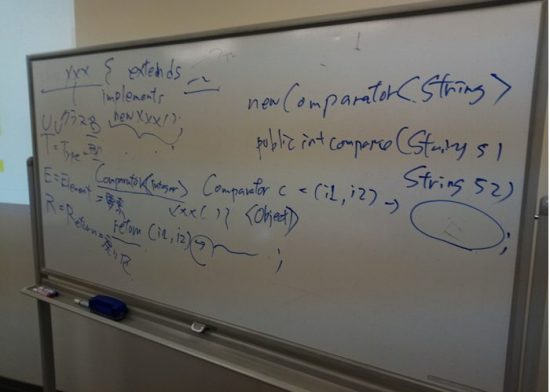 xxx { extends ~
implements
new xxx()
new Comparator<String>
public int compare(String s1
String s2)
T = Type =
E = Element
= 要素
Comparator<Integer>
Comparator c = (i1, i2) →
xxx( ) {
<Object>
R = Return =
return (i1, i2) →
;
;